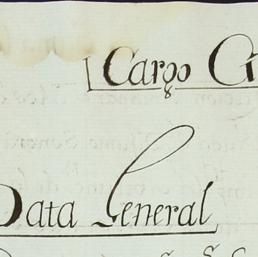 Cargo G
Data General